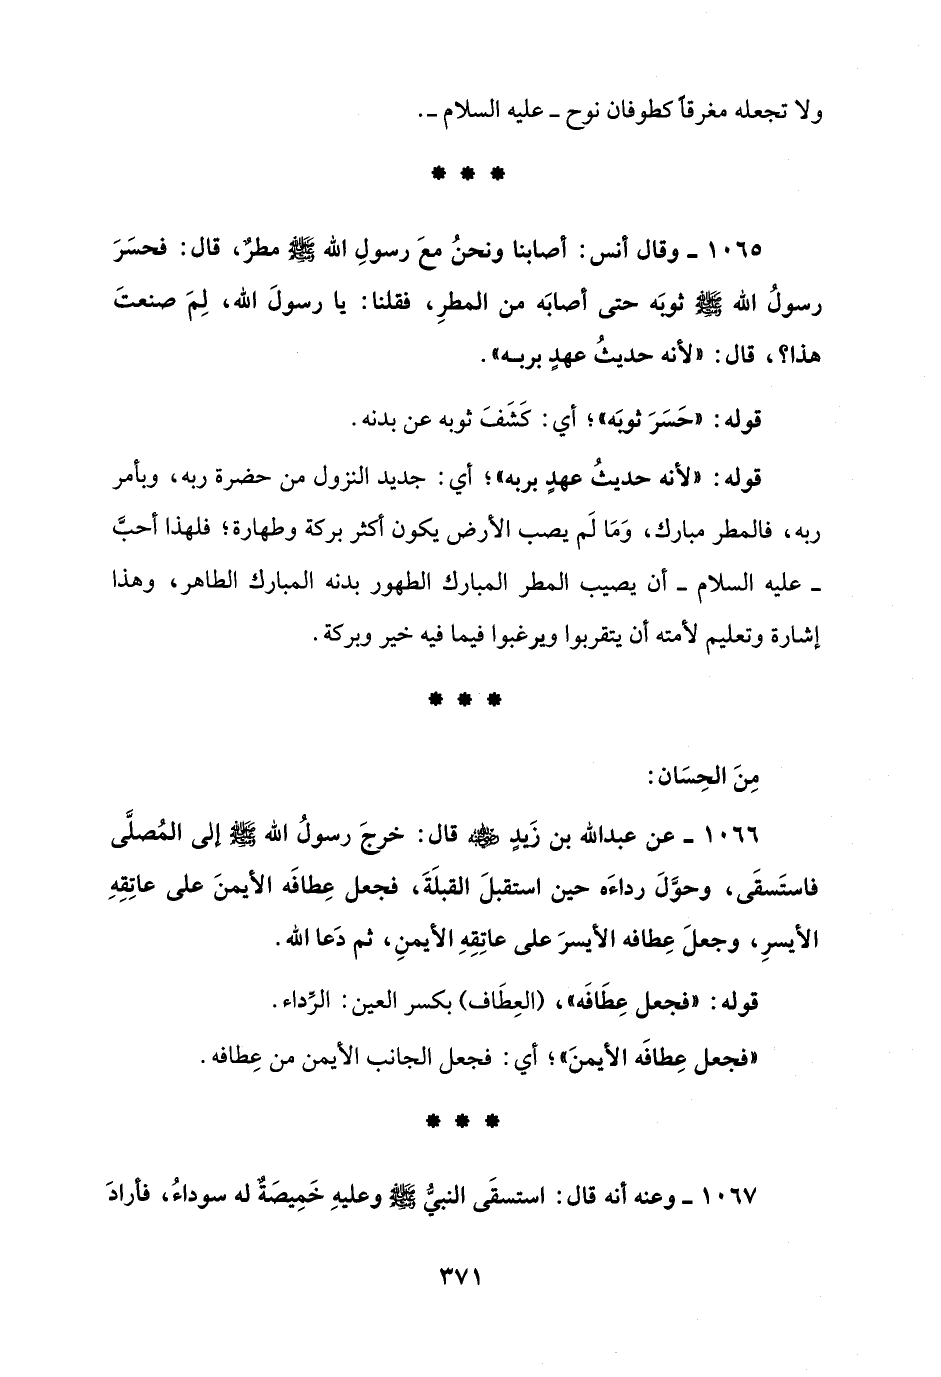 ولا تجعله مغرقاً كطوفان نوح ـ عليه السلام ـ.
* * *
١٠٦٥ ـ وقال أنس: أصابنا ونحنُ معَ رسولِ الله ﷺ مطرٌ، قال: فحسَرَ
رسولُ الله ﷺ ثوبَه حتى أصابَه من المطرِ، فقلنا: يا رسولَ الله، لِمَ صنعتَ
هذا؟، قال: «لأنه حديثُ عهدٍ بربه».
قوله: «حَسَرَ ثوبَه»؛ أي: كَشَفَ ثوبه عن بدنه.
قوله: «لأنه حديثُ عهدٍ بربه»؛ أي: جديد النزول من حضرة ربه، وبأمر
ربه، فالمطر مبارك، وَمَا لَم يصب الأرض يكون أكثر بركة وطهارة؛ فلهذا أحبَّ
ـ عليه السلام ـ أن يصيب المطر المبارك الطهور بدنه المبارك الطاهر، وهذا
إشارة وتعليم لأمته أن يتقربوا ويرغبوا فيما فيه خير وبركة.
* * *
مِنَ الحِسَان:
١٠٦٦ ـ عن عبدالله بن زَيدٍ ﷺ قال: خرجَ رسولُ الله ﷺ إلى المُصلَّى
فاستَسقَى، وحوَّلَ رداءَه حين استقبلَ القبلَةَ، فجعل عِطافَه الأيمنَ على عاتِقِهِ
الأيسرِ، وجعلَ عِطافه الأيسرَ على عاتِقِهِ الأيمنِ، ثم دَعا الله.
قوله: «فجعل عِطَافَه»، (العِطَاف) بكسر العين: الرِّداء.
«فجعل عِطافَه الأيمنَ»؛ أي: فجعل الجانب الأيمن من عِطافه.
* * *
١٠٦٧ ـ وعنه أنه قال: استسقَى النبيُّ ﷺ وعليهِ خَمِيصَةٌ له سوداءُ، فأرادَ
٣٧١